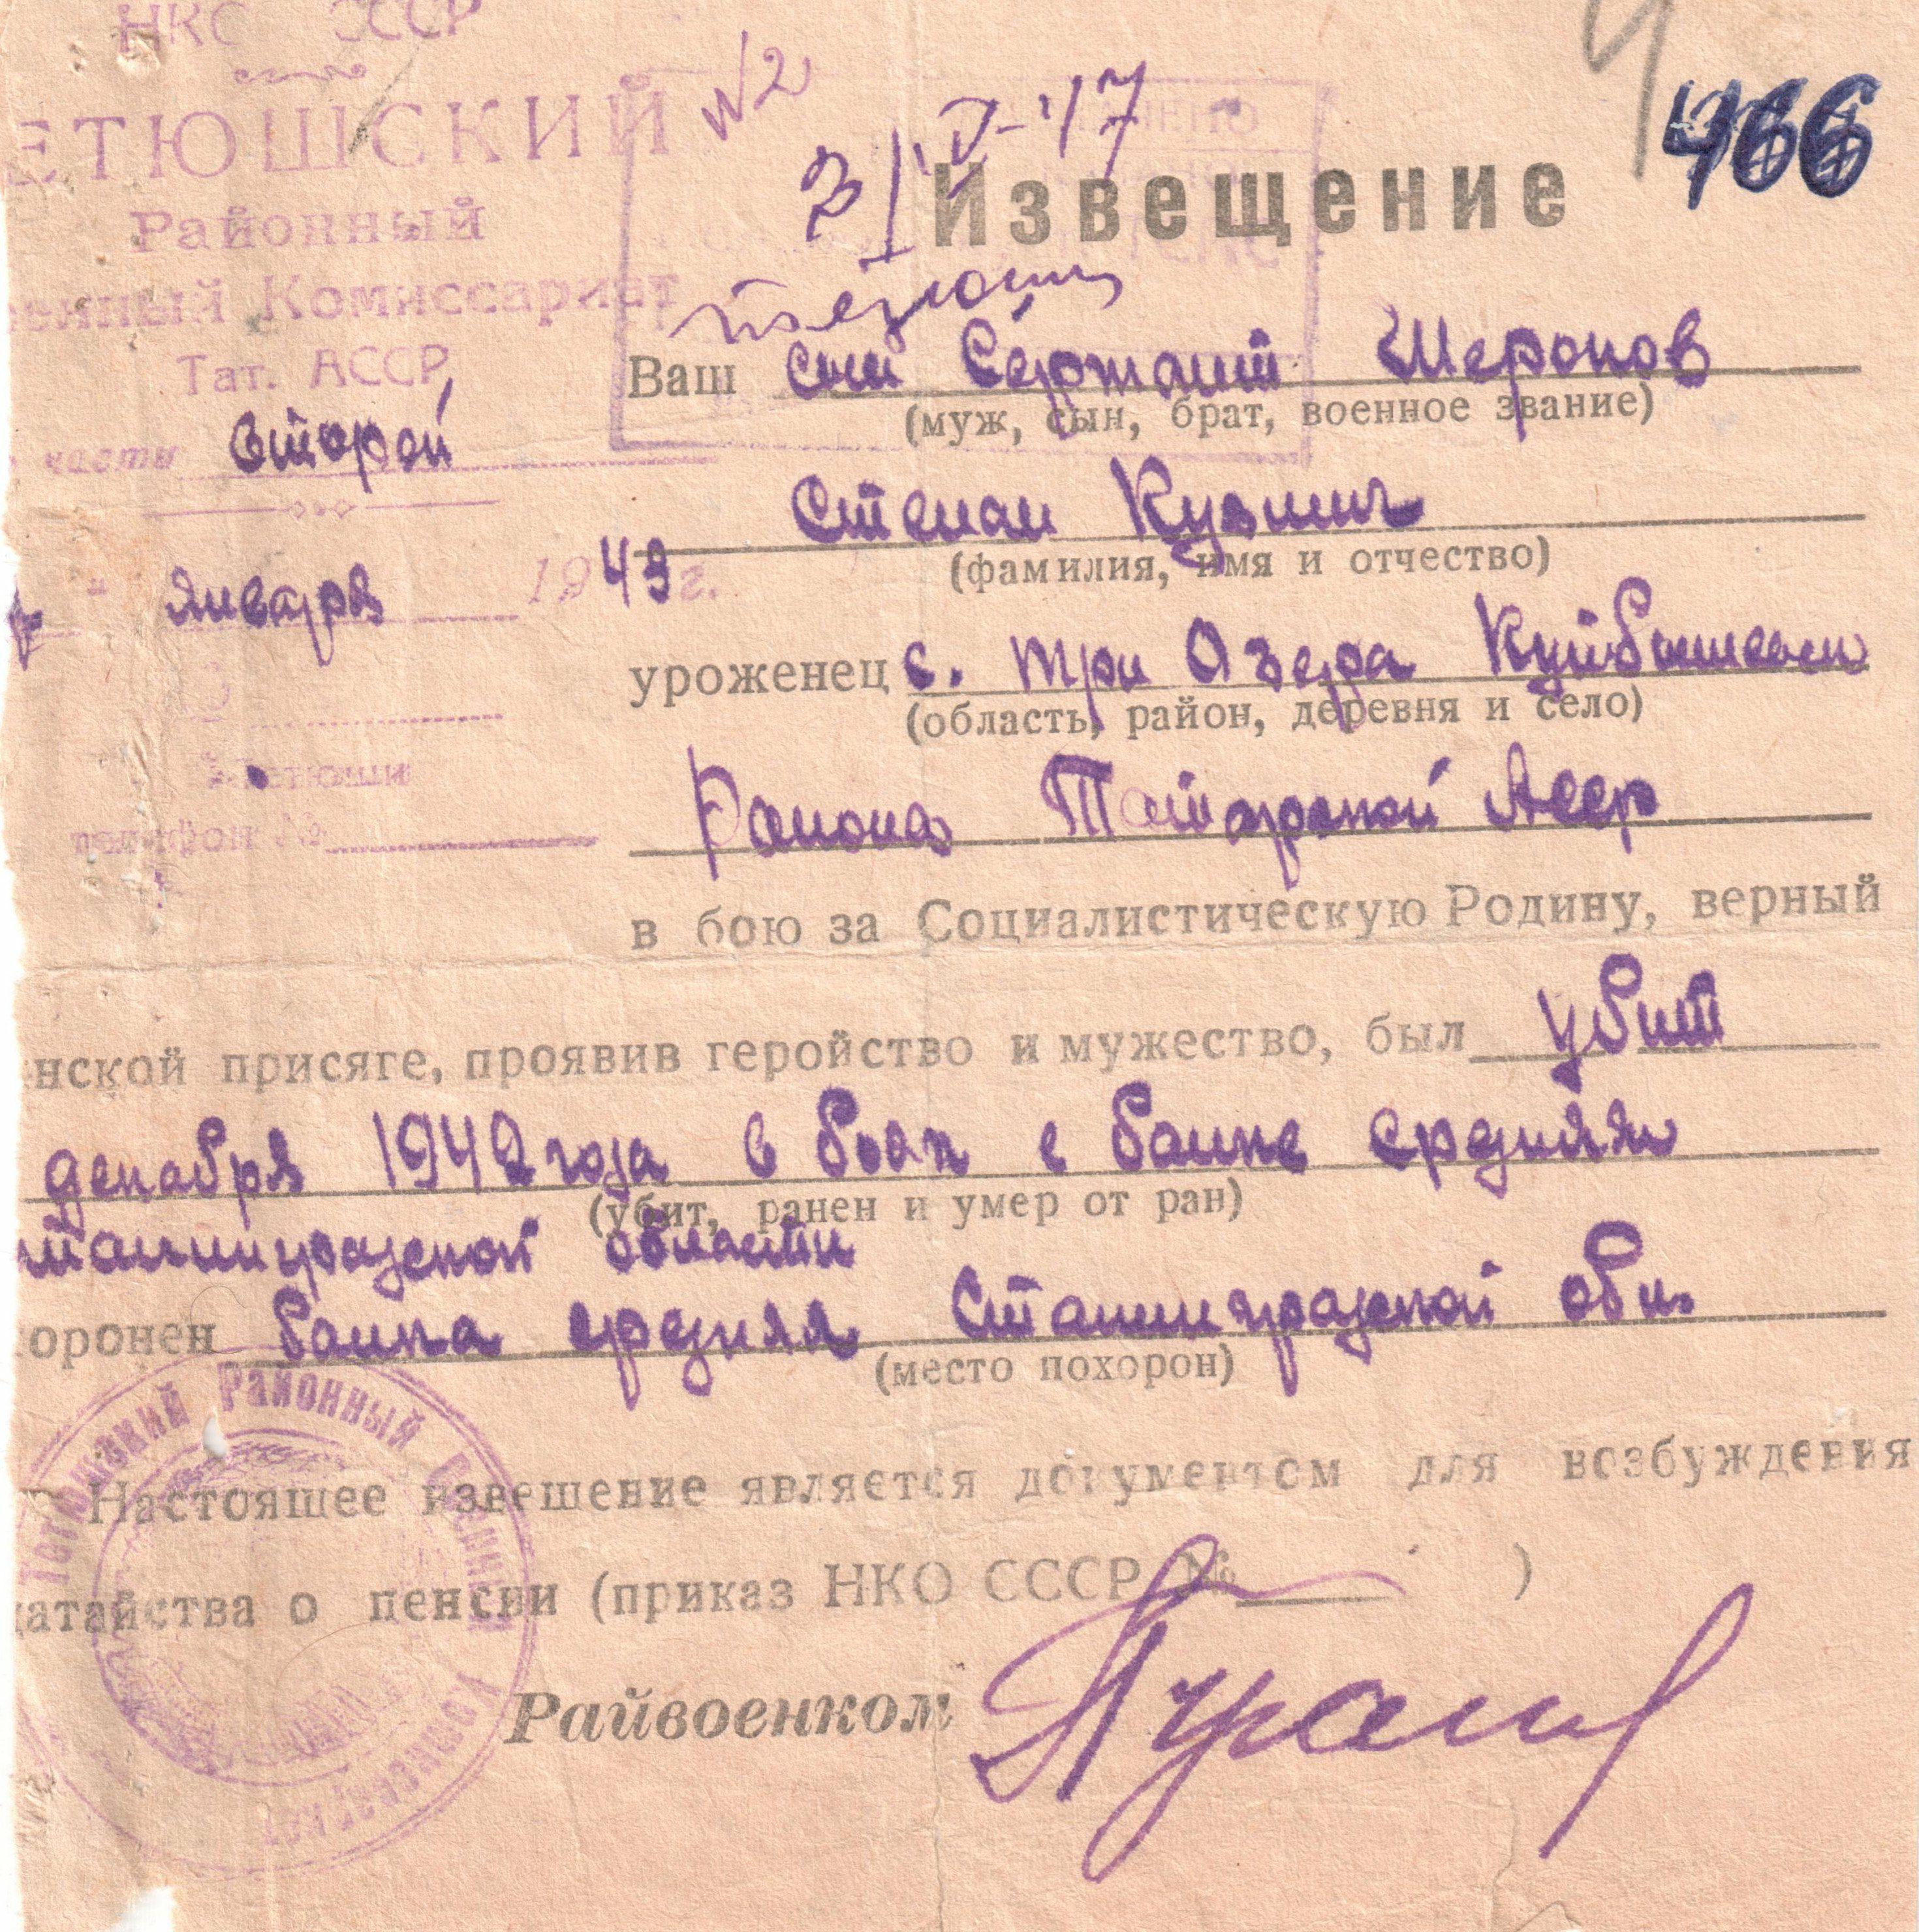 НКО СССР
ЕТЮШСКИЙ
Районный
енный Комиссариат
Тат. АССР
части второй
января 1943 г.
Тетюши
телефон №
№2
3/V-47
466
Извещение
Ваш сын Сержант Шеронов
(муж, сын, брат, военное звание)
Степан Кузмич
(фамилия, имя и отчество)
уроженец с. три Озера Куйбышевск
(область, район, деревня и село)
Района Татарской Асср
в бою за Социалистическую Родину, верный
нской присяге, проявив геройство и мужество, был убит
декабря 1942 года в боях с балке средняя
(убит, ранен и умер от ран)
сталинградской области
оронен балка средняя Сталинградской обл.
(место похорон)
Настоящее извещение является документом для возбуждения
датайства о пенсии (приказ НКО СССР № )
Райвоенком
Тетюшский Районный Военный Комиссариат